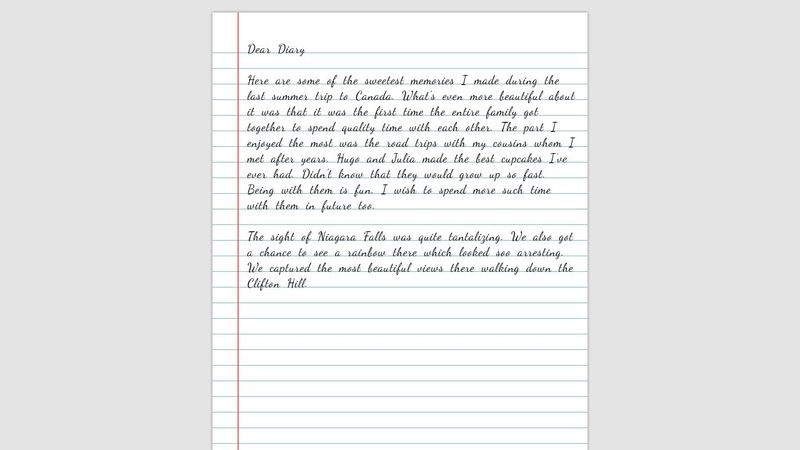 Dear Diary
Here are some of the sweetest memories I made during the
last summer trip to Canada. What's even more beautiful about
it was that it was the first time the entire family got
together to spend quality time with each other. The part I
enjoyed the most was the road trips with my cousins whom I
met after years. Hugo and Julia made the best cupcakes I've
ever had. Didn't know that they would grow up so fast.
Being with them is fun. I wish to spend more such time
with them in future too.
The sight of Niagara Falls was quite tantalizing. We also got
a chance to see a rainbow there which looked soo arresting.
We captured the most beautiful views there walking down the
Clifton Hill.